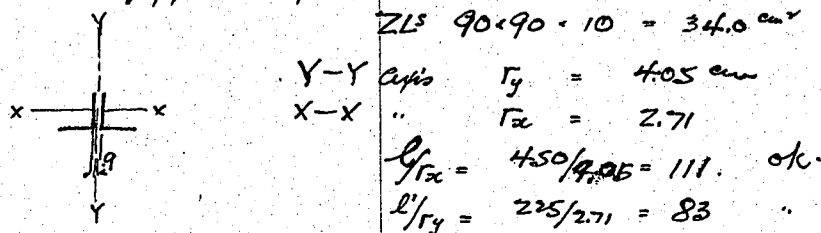 2Ls 90×90×10 = 34.0 cm²
Y
Y-Y axis ry = 4.05 cm
x x
X-X " rx = 2.71
9
l/rx = 450/4.05 = 111. ok.
l'/ry = 225/2.71 = 83 "
Y